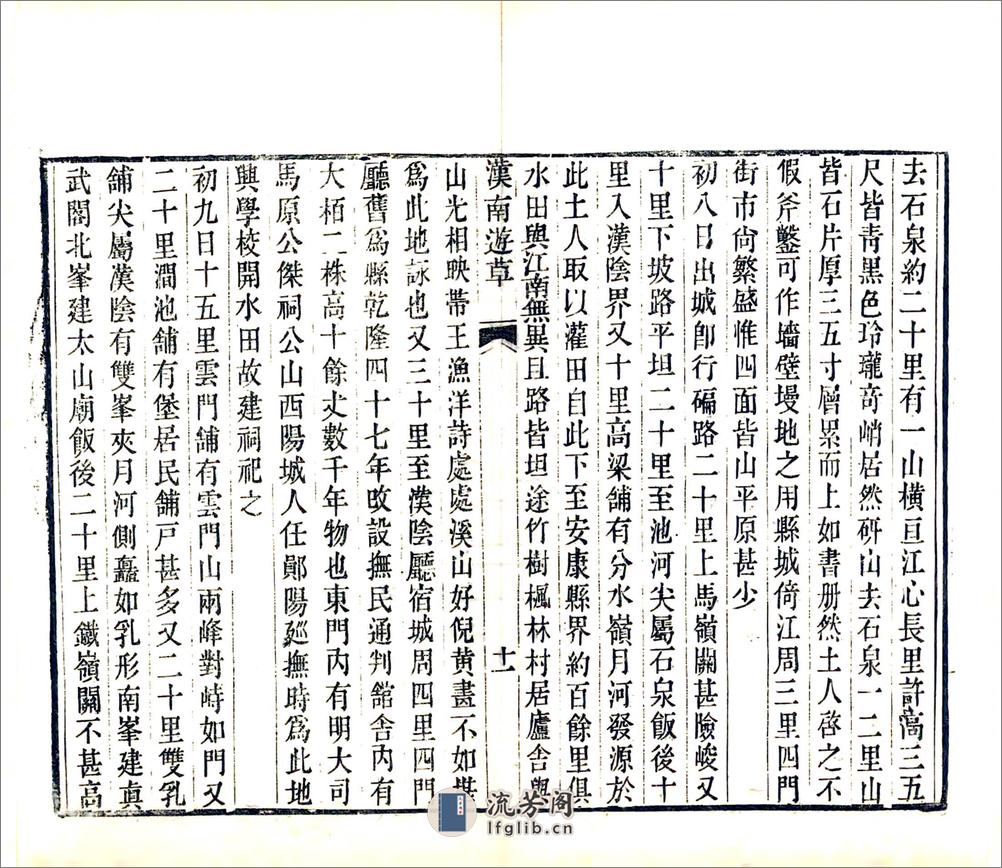 去石泉約二十里有一山橫亘江心長里許高三五
尺皆靑黑色玲瓏奇峭居然硏山去石泉一二里山
皆石片厚三五寸層累而上如書册然土人啓之不
假斧鑿可作墻壁墁地之用縣城倚江周三里四門
街市尙繁盛惟四面皆山平原甚少
初八日出城卽行碥路二十里上馬嶺關甚險峻又
十里下坡路平坦二十里至池河尖屬石泉飯後十
里入漢陰界又十里高梁舖有分水嶺月河發源於
此土人取以灌田自此下至安康縣界約百餘里俱
水田與江南無異且路皆坦途竹樹楓林村居廬舍與
漢南遊草
十一
山光相映帯王漁洋詩處處溪山好倪黄畫不如堪
爲此地詠也又三十里至漢陰廳宿城周四里四門
廳舊爲縣乾隆四十七年改設撫民通判舘舍内有
大栢二株高十餘丈數千年物也東門内有明大司
馬原公傑祠公山西陽城人任鄖陽廵撫時爲此地
興學校開水田故建祠祀之
初九日十五里雲門舖有雲門山兩峰對峙如門又
二十里澗池舖有堡居民舖戸甚多又二十里雙乳
舖尖屬漢陰有雙峯夾月河側矗如乳形南峯建眞
武閣北峯建太山廟飯後二十里上鐵嶺關不甚高
流芳阁
lfglib.cn